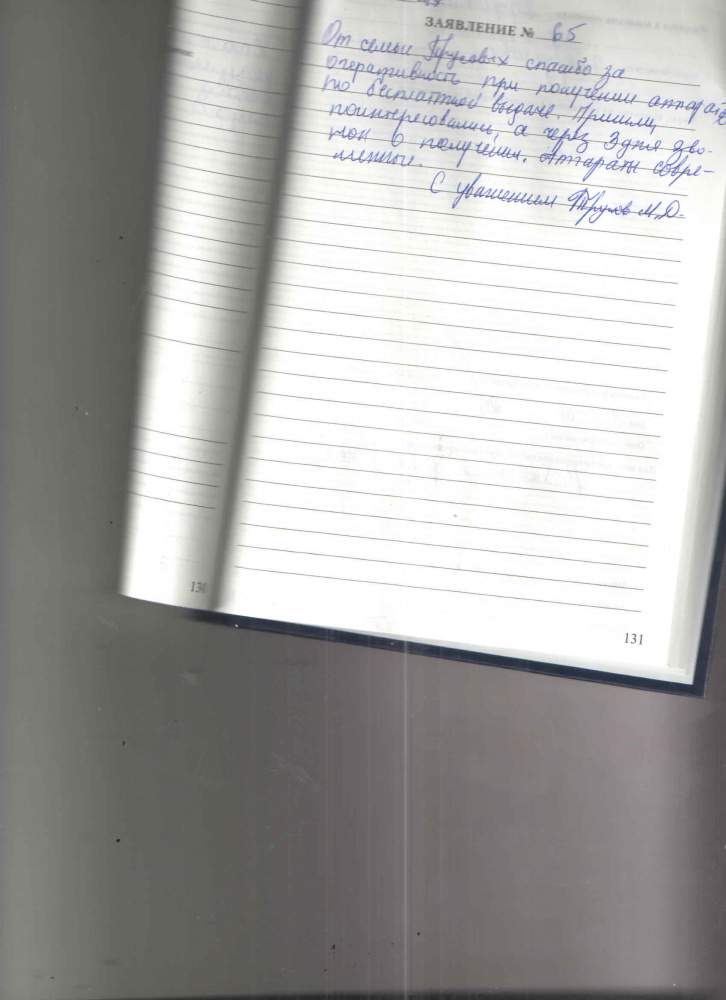 ЗАЯВЛЕНИЕ № 65
От семьи спасибо за
оперативность при получении аппарата
по бесплатной выдаче. Пришли,
поинтересовались, а через 3 дня зво-
нок о получении. Аппараты совре-
менные.
С уважением М.Д.
130
131